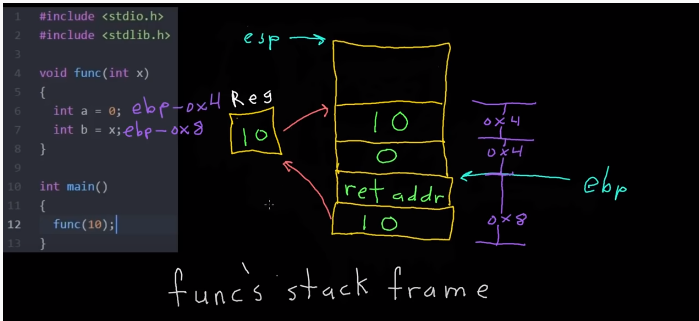 1 #include <stdio.h>
2 #include <stdlib.h>
3
4 void func(int x)
5 {
6 int a = 0; ebp-0x4
7 int b = x; ebp-0x8
8 }
9
10 int main()
11 {
12 func(10);
13 }
esp
Reg
10
10
0
ret addr
10
0x4
0x4
0x8
ebp
func's stack frame